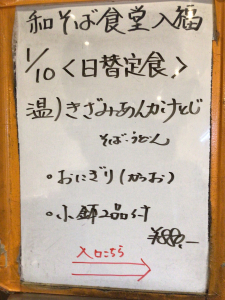 和そば食堂入福
1/10 <日替定食>
温)きざみあんかけとじ
そば・うどん
・おにぎり(かつお)
・小鉢2品付
¥880.-
入口こちら